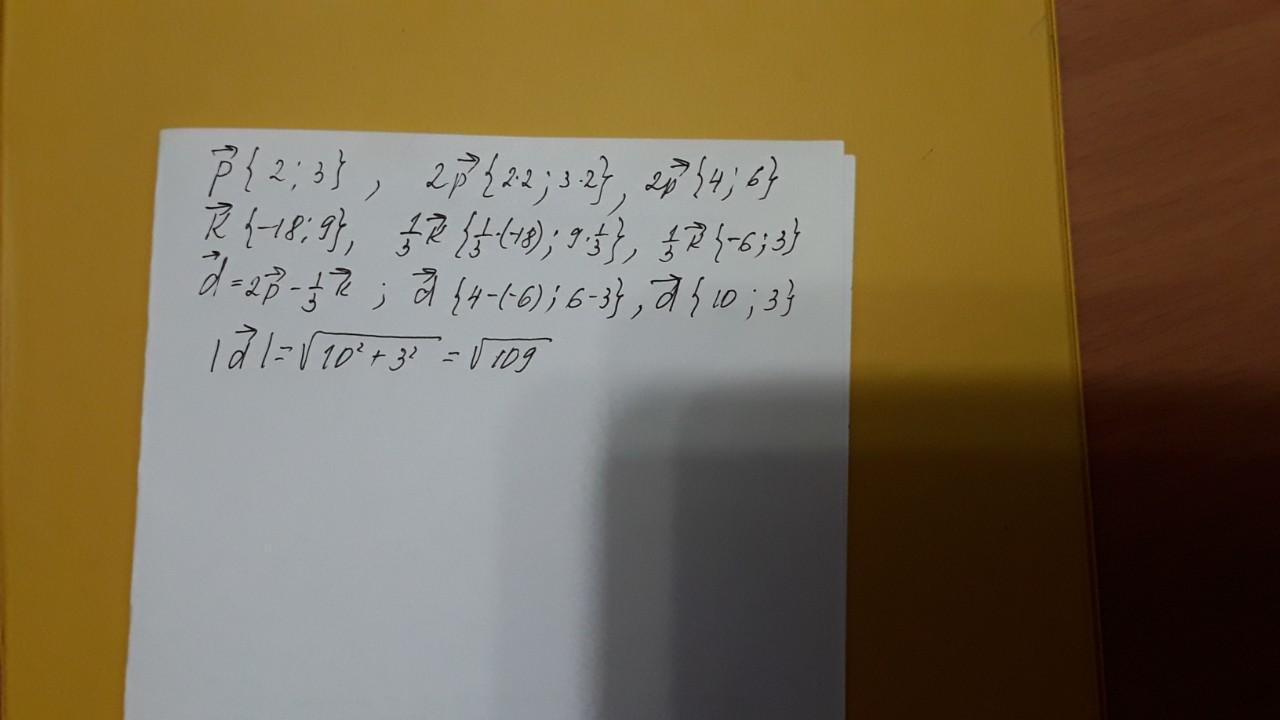 p⃗ {2; 3}, 2p⃗ {2·2; 3·2}, 2p⃗ {4; 6}
k⃗ {-18; 9}, 1/3 k⃗ {1/3·(-18); 9·1/3}, 1/3 k⃗ {-6; 3}
d⃗ = 2p⃗ - 1/3 k⃗ ; d⃗ {4-(-6); 6-3}, d⃗ {10; 3}
|d⃗| = √(10² + 3²) = √109